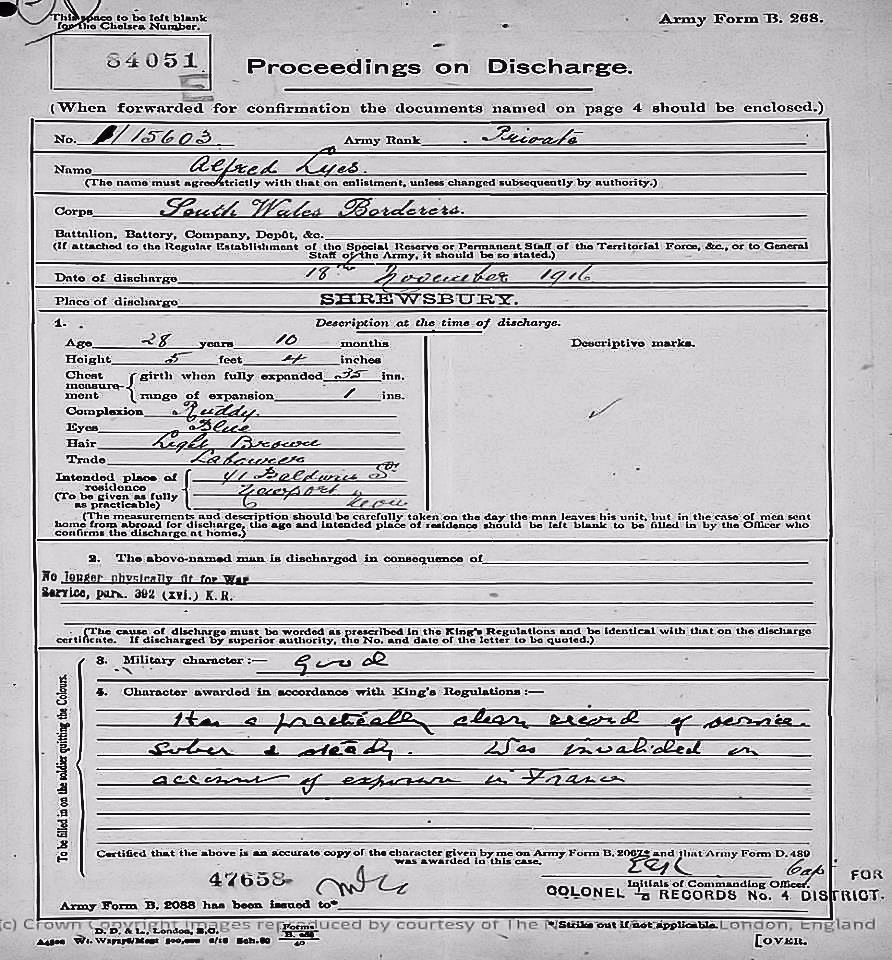 This space to be left blank
for the Chelsea Number.
Army Form B. 268.
84051
E
Proceedings on Discharge.
(When forwarded for confirmation the documents named on page 4 should be enclosed.)
No. /15603 Army Rank Private
Name Alfred Lyes.
(The name must agree strictly with that on enlistment, unless changed subsequently by authority.)
Corps South Wales Borderers.
Battalion, Battery, Company, Depôt, &c.
(If attached to the Regular Establishment of the Special Reserve or Permanent Staff of the Territorial Force, &c., or to General
Staff of the Army, it should be so stated.)
Date of discharge 18th November 1916
Place of discharge SHREWSBURY.
1. Description at the time of discharge.
Age 28 years 10 months
Height 5 feet 4 inches
Chest measurement girth when fully expanded 35 ins.
range of expansion 1 ins.
Complexion Ruddy.
Eyes Blue
Hair Light Brown
Trade Labourer
Intended place of residence 41 Baldwin St
(To be given as fully as practicable) Newport Mon
Descriptive marks.
(The measurements and description should be carefully taken on the day the man leaves his unit, but in the case of men sent
home from abroad for discharge, the age and intended place of residence should be left blank to be filled in by the Officer who
confirms the discharge at home.)
2. The above-named man is discharged in consequence of
No longer physically fit for War
Service, para. 392 (xvi.) K.R.
(The cause of discharge must be worded as prescribed in the King's Regulations and be identical with that on the discharge
certificate. If discharged by superior authority, the No. and date of the letter to be quoted.)
To be filled in on the soldier quitting the Colours.
3. Military character:— Good
4. Character awarded in accordance with King's Regulations:—
Has a practically clean record of service.
Sober & steady. Was invalided on
account of exposure in France
Certified that the above is an accurate copy of the character given by me on Army Form B. 2067* and that Army Form D. 489
was awarded in this case.
Capt FOR
Initials of Commanding Officer.
47658
COLONEL i/c RECORDS No. 4 DISTRICT.
Army Form B. 2088 has been issued to*
(c) Crown Copyright Images reproduced by courtesy of The N London, England
*Strike out if not applicable.
D. D. & L., London, E.C.
Forms
[OVER.